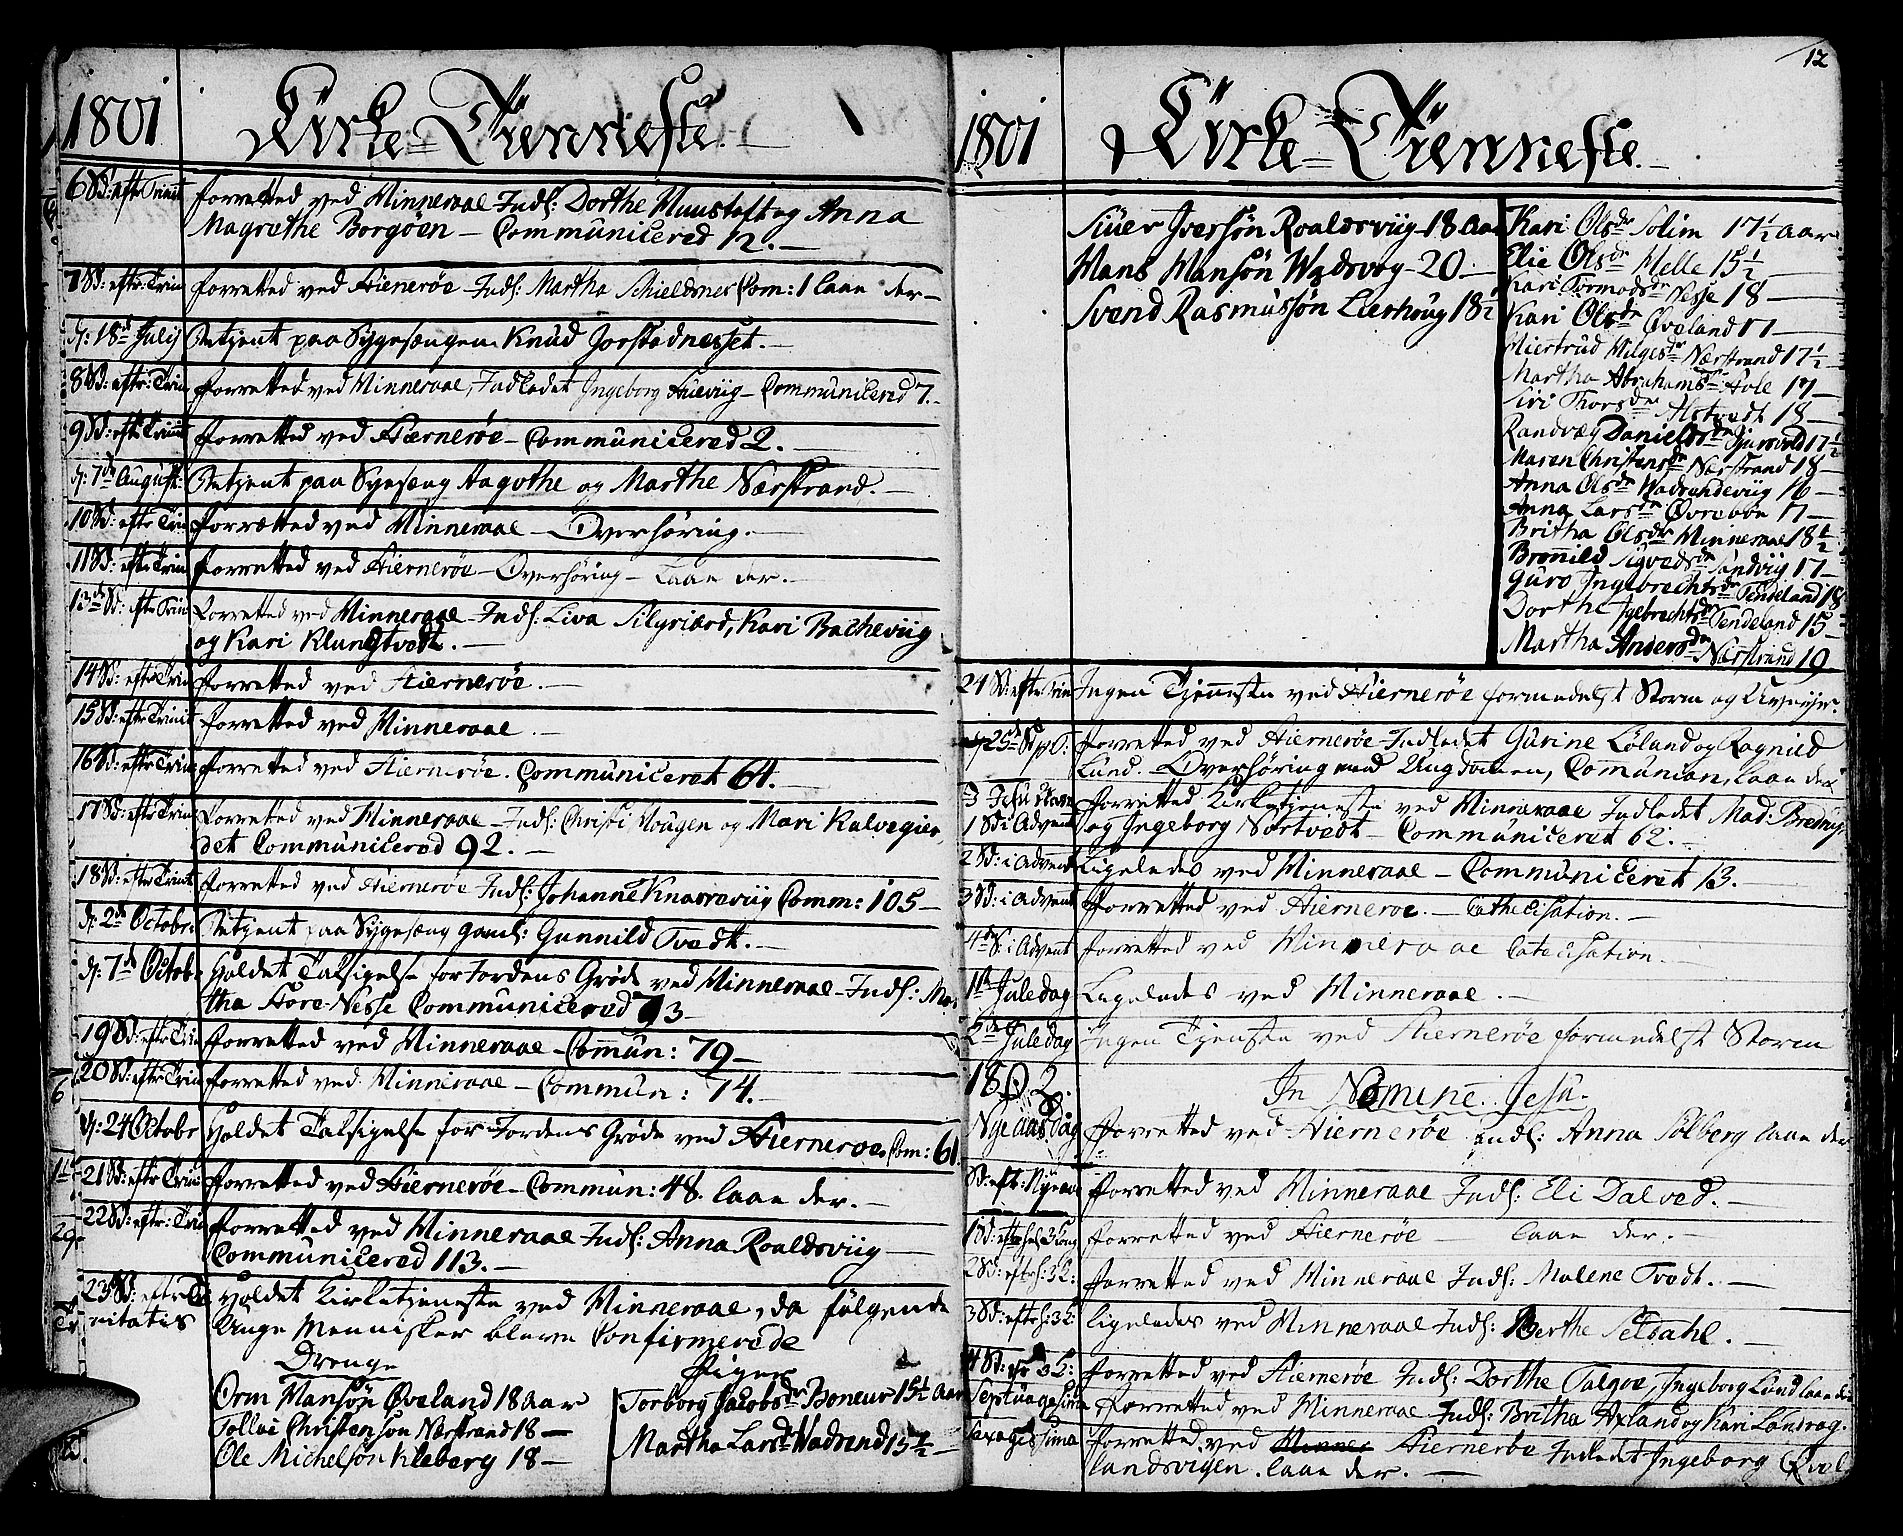 1801 Kirke-Tienneste.
6 Sd: eftr Trinit forretted ved Hinneraae Indl: Dorthe Huustoft og Anna
Magrethe Borgøen - Communicered 12.
7 Sd: eftr: Trin forretted ved Hiernerøe - Indl: Martha Schieldsnes Com: 1 laae der
d: 18de Julij Betjent paa Sygesængen Knud Jorstadnesset.
8 Sd: eftr: Trin forretted ved Hinneraae, Indledet Ingeborg Hueviig - Communicered 7.
9 Sd: eftr Trinit forretted ved Hiernerøe - Communicered 2.
d: 7de August: Betjent paa Sygesæng Aagothe og Marthe Nærstrand.
10 Sd: eftr Trin forretted ved Hinneraae - Overhøring.
11 Sd: eftr Trin forretted ved Hiernerøe - Overhøring - laae der.
13de Sd: eftr Trin forretted ved Hinneraae - Indl: Liva Silgiærd, Kari Bacheviig
og Kari Klungtvedt.
14 Sd: eftr Trin forretted ved Hiernerøe.
15 Sd: eftr Trinit forretted ved Hinneraae.
16 Sd: eftr Trin forretted ved Hiernerøe. Communiceret 64.
17 Sd: eftr Trin forretted ved Hinneraae - Indl: Christi Hougen og Mari Kalvegier
det Communicered 92.
18 Sd: eftr Trinit forretted ved Hiernerøe Indl: Johanne Knarreviig Comm: 105
d: 2de October Betjent paa Sygesæng gaml: Gunnild Tvedt.
d: 7de Octob: Holdet Taksigelse for Jordens Grøde ved Hinneraae - Indl: Mar
tha Føre-Nesse Communicered 93
19 Sd: eftr Trin forretted ved Hinneraae - Commun: 79
20 Sd: eftr Trin forretted ved Hinneraae - Commun: 74.
d: 24 Octobr Holdet Taksigelse for Jordens Grøde ved Hiernerøe. Com: 61
21 Sd: eftr Trin forretted ved Hiernerøe - Commun: 48. laae der.
22 Sd: eftr: Trin forretted ved Hinneraae Indl: Anna Roaldsviig
Communicered 113.
23 Sd: eftr Tri Holdet Kirketjeneste ved Hinneraae, da følgende
nitatis Unge Mennisker bleve Confirmerede
Drenge Piger
Orm Hansøn Øveland 18 aar Torborg Jacobsdr Boneur 15½ aar
Tollac Christensøn Nærstrand 18 Martha Larsdr Hadrand 15½
Ole Michelsøn Kleberg 18
12
1801 Kirke-Tienneste.
Siver Iversøn Roaldsviig 18 aar
Hans Hansøn Wadsvog 20
Svend Rasmussøn Lierhoug 18½
Kari Olsdr Solim 17½ aar
Elie Olsdr Helle 15½
Kari Tormodsdr Nesse 18
Kari Olsdr Øveland 17
Giertrud Helgesdr Nærstrand 17½
Martha Abrahamsdr Hole 17
Siri Thorsdr Alstvedt 18
Randveg Danielsdr 17½
Maren Christensdr Nærstrand 18
Anna Olsdr Hadrandeviig 16
Anna Larsdr Øvrebøe 17
Britha Olsdr Hinneraae 18½
Bronild Sivedsdr Sandviig 17
Guro Ingebrechtsdr Tendeland 18
Dorthe Ingebrechtsdr Tendeland 15
Martha Andersdr Nærstrand 19
24 Sd: eftr Trin Ingen Tjenneste ved Hiernerøe formedelst Storm og Uvejr.
forretted ved Hiernerøe Indledet Gurine Løland og Ragnild
Lund. Overhøring med Ungdommen, Communion, laae der
forretted Kirketjeneste ved Hinneraae Indledet Mad: Bredrup
1 Sd: i Advent og Ingeborg Nortvedt - Communiceret 62.
2 Sd: i Advent Ligeledes ved Hinneraae - Communiceret 13.
3 Sd: i Advent forretted ved Hiernerøe. - Cathecisation.
4de S: i Advent forretted ved Hinneraae Catecisation.
1ste Juledag Ligeledes ved Hinneraae.
2den Juledag Ingen Tjeneste ved Hiernerøe formedelst Storm
1802. In Nomine Jesu.
Nyeaarsdag forretted ved Hiernerøe Indl: Anna Solberg laae der
Sd: eft: Nyeaar forretted ved Hinneraae Indl: Eli Dalved.
1 Sd: eftr hel: 3 Kong forretted ved Hiernerøe laae der.
2 Sd: eftr h: 3 K: forretted ved Hinneraae Indl: Malene Tvedt.
3 Sd: eftr h: 3 K: Ligeledes ved Hinneraae Indl: Berthe Selsahl.
4 Sd: eftr 3 K: forretted ved Hiernerøe Indl: Dorthe Talgøe, Ingeborg Lund laae der
Septuagesima Forretted ved Hinneraae Indl: Britha Axland og Kari Landvog.
Sexagesima forretted ved Hinner Hiernerøe Indledet Ingeborg Øvel
landsvigen. laae der.